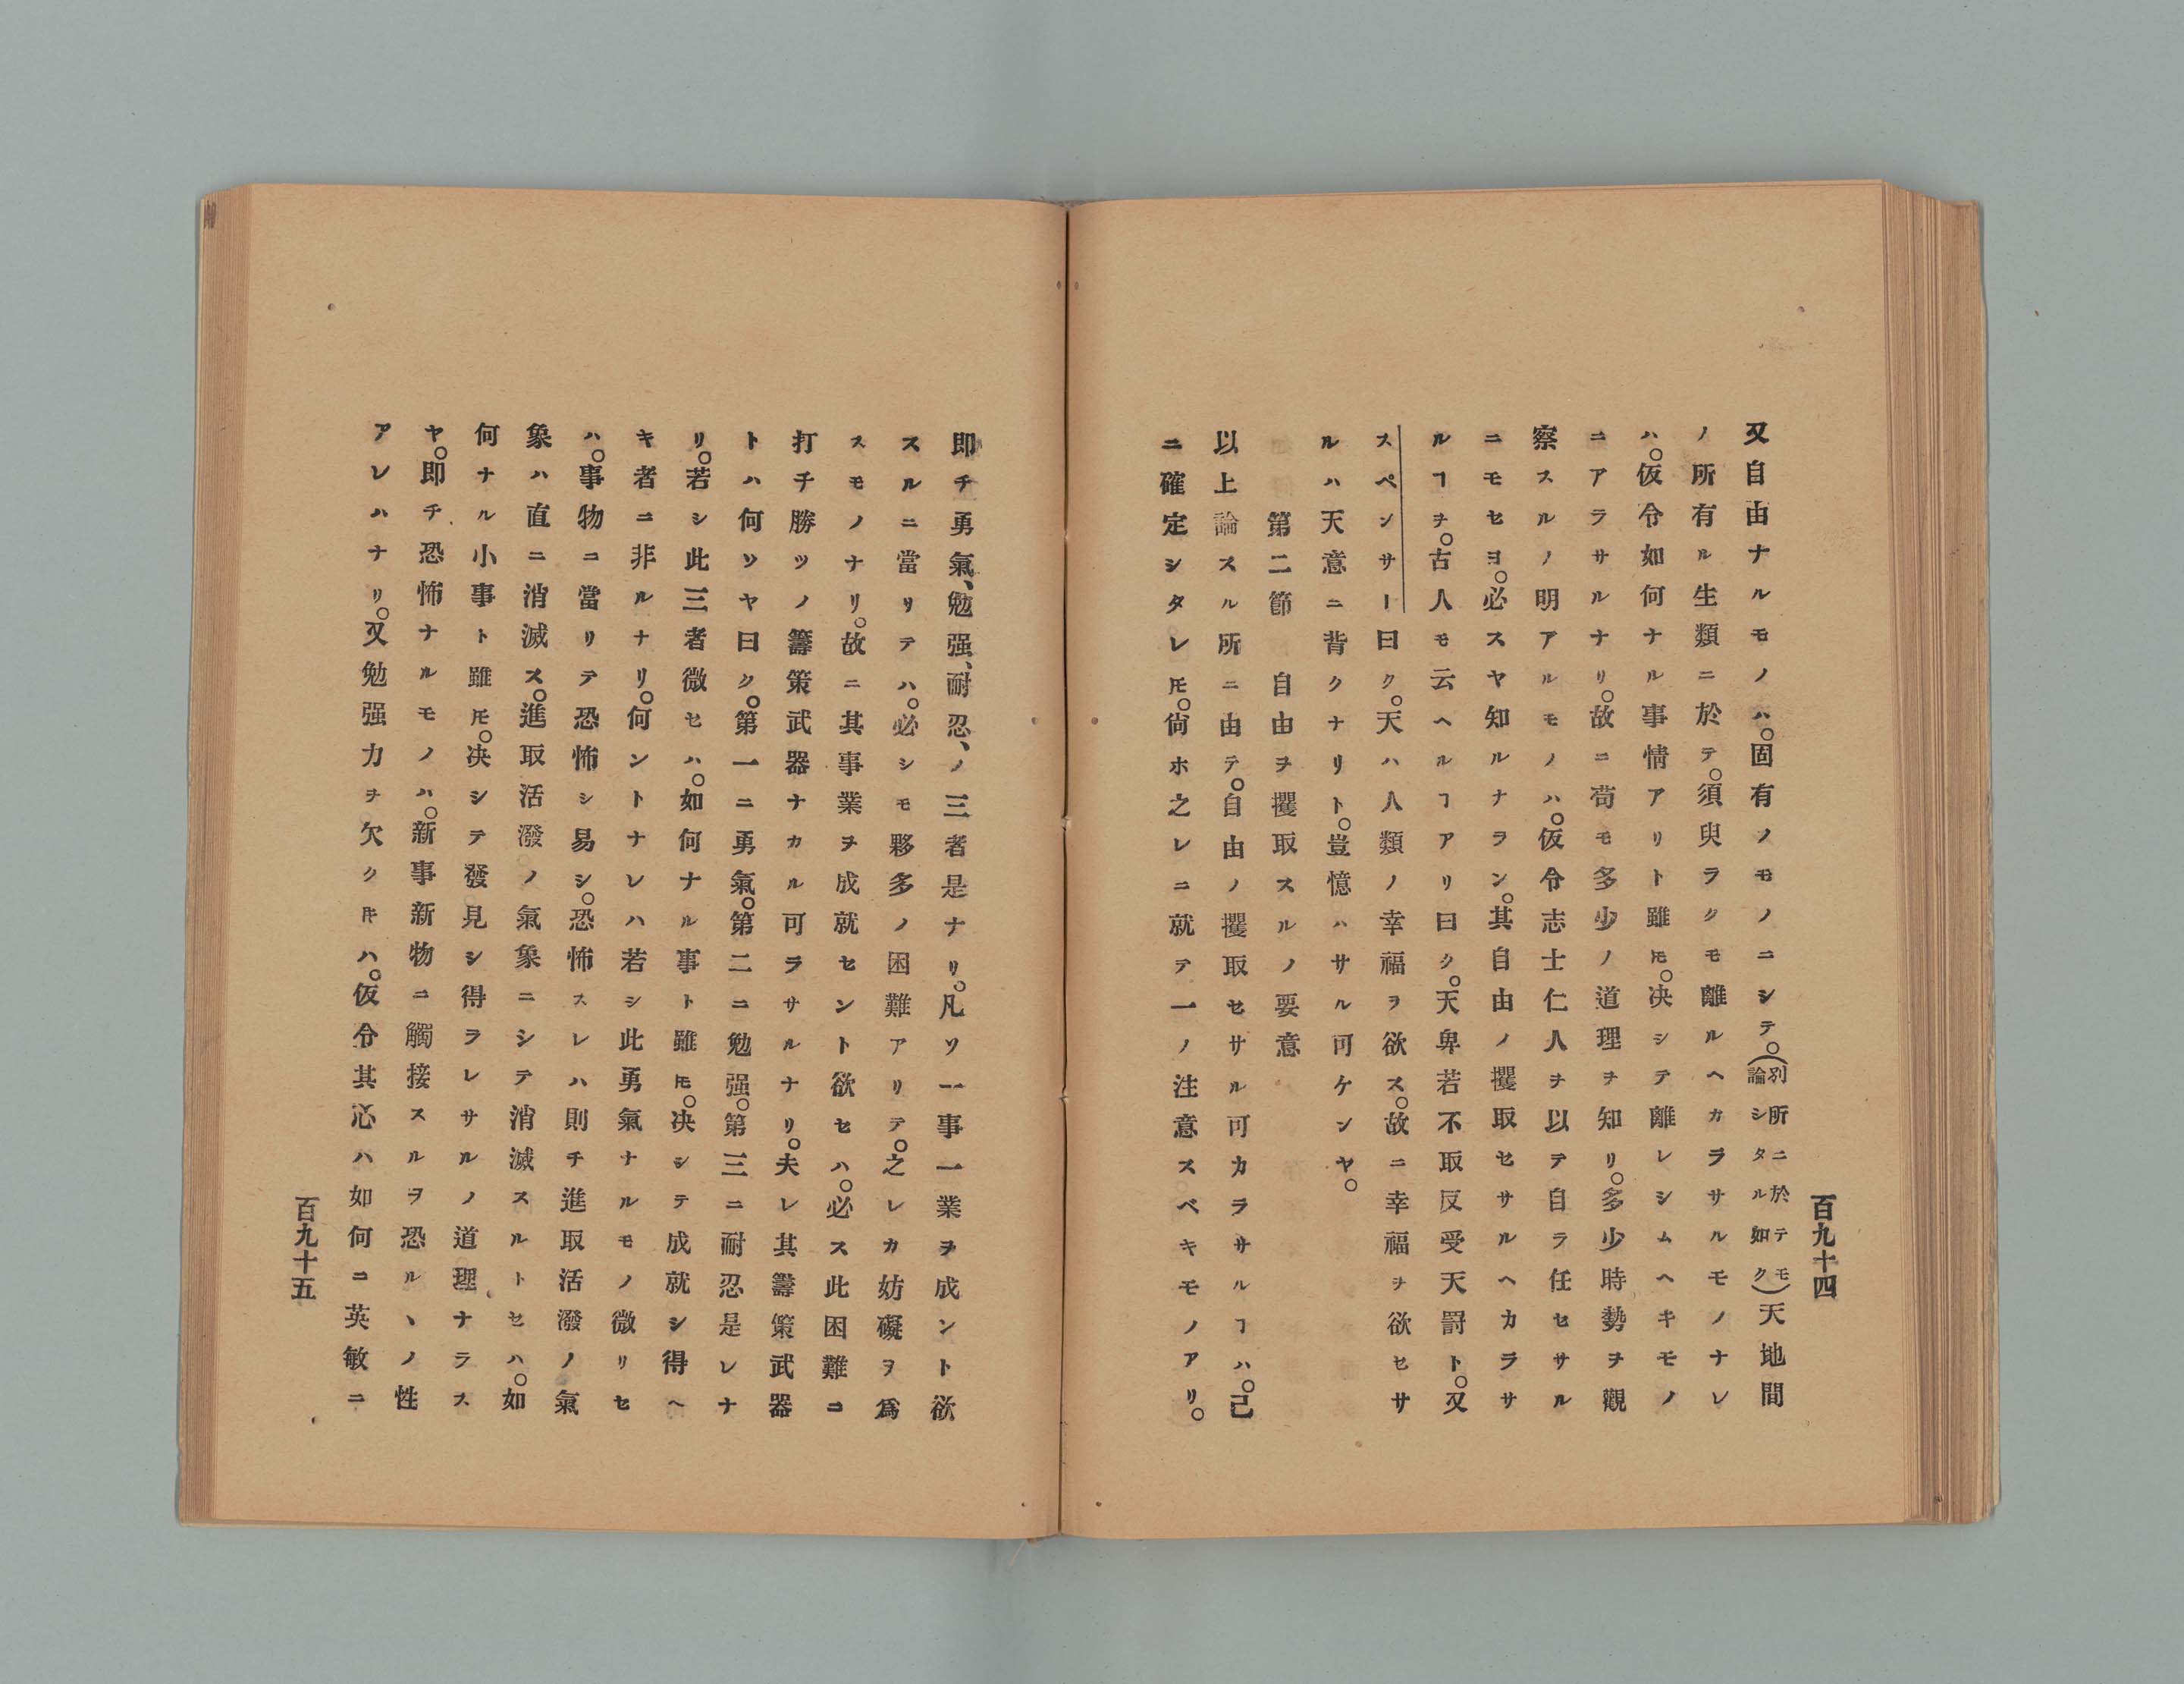 百九十四
又自由ナルモノハ。固有ノモノニシテ。(別所ニ於テモ論シタル如ク)天地間
ノ所有ル生類ニ於テ。須臾ラクモ離ルヘカラサルモノナレ
ハ。仮令如何ナル事情アリト雖𪜈。决シテ離レシムヘキモノ
ニアラサルナリ。故ニ苟モ多少ノ道理ヲ知リ。多少時勢ヲ觀
察スルノ明アルモノハ。仮令志士仁人ヲ以テ自ラ任セサル
ニモセヨ。必スヤ知ルナラン。其自由ノ攫取セサルヘカラサ
ルヿヲ。古人モ云ヘルヿアリ曰ク。天卑若不取反受天罸ト。又
スペンサー曰ク。天ハ人類ノ幸福ヲ欲ス。故ニ幸福ヲ欲セサ
ルハ天意ニ背クナリト。豈憶ハサル可ケンヤ。
第二節　自由ヲ攫取スルノ要意
以上論スル所ニ由テ。自由ノ攫取セサル可カラサルヿハ。己
ニ確定シタレ𪜈。尙ホ之レニ就テ一ノ注意スベキモノアリ。
即チ勇氣、勉强、耐忍、ノ三者是ナリ。凡ソ一事一業ヲ成ント欲
スルニ當リテハ。必シモ夥多ノ困難アリテ。之レカ妨礙ヲ爲
スモノナリ。故ニ其事業ヲ成就セント欲セハ。必ス此困難ニ
打チ勝ツノ籌策武器ナカル可ラサルナリ。夫レ其籌策武器
トハ何ソヤ曰ク。第一ニ勇氣。第二ニ勉强。第三ニ耐忍是レナ
リ。若シ此三者微セハ。如何ナル事ト雖𪜈。决シテ成就シ得ヘ
キ者ニ非ルナリ。何ントナレハ若シ此勇氣ナルモノ微リセ
ハ。事物ニ當リテ恐怖シ易シ。恐怖スレハ則チ進取活潑ノ氣
象ハ直ニ消滅ス。進取活潑ノ氣象ニシテ消滅スルトセハ。如
何ナル小事ト雖𪜈。决シテ發見シ得ラレサルノ道理ナラス
ヤ。即チ恐怖ナルモノハ。新事新物ニ觸接スルヲ恐ルヽノ性
アレハナリ。又勉强力ヲ欠クㇳキハ。仮令其心ハ如何ニ英敏ニ
百九十五